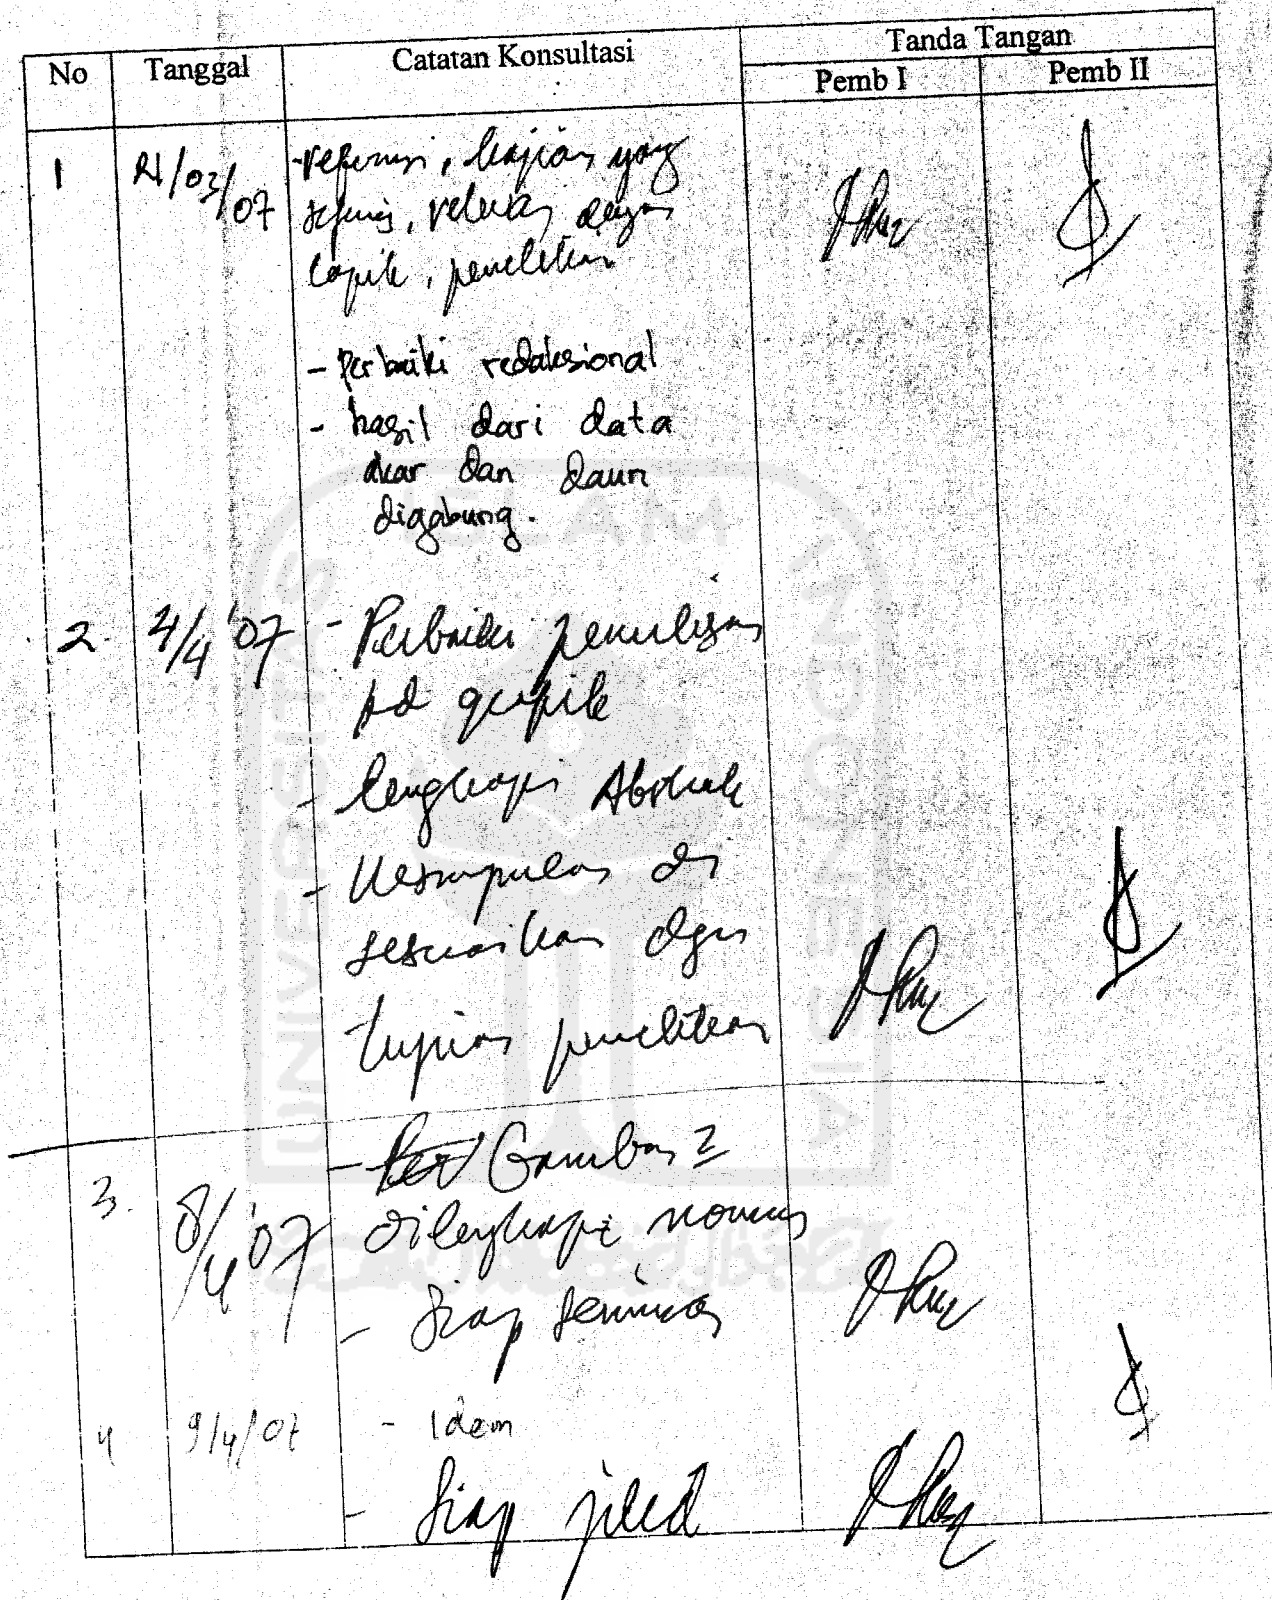 No Tanggal Catatan Konsultasi Tanda Tangan
Pemb I Pemb II
1 /03/07 - referensi, kajian yang
sejenis, relevan dengan
topik, penelitian
- Perbaiki redaksional
- hasil dari data
akar dan daun
digabung.
2. 4/4 '07 - Perbaiki penulisan
pd grafik
- lengkapi Abstrak
- Kesimpulan di
sesuaikan dgn
tujuan penelitian
3. 8/4 '07 - Gambar2
dilengkapi nomor
- Siap seminar
4 9/4/07 - Idem
- Siap jilid
UNIVERSITAS ISLAM INDONESIA